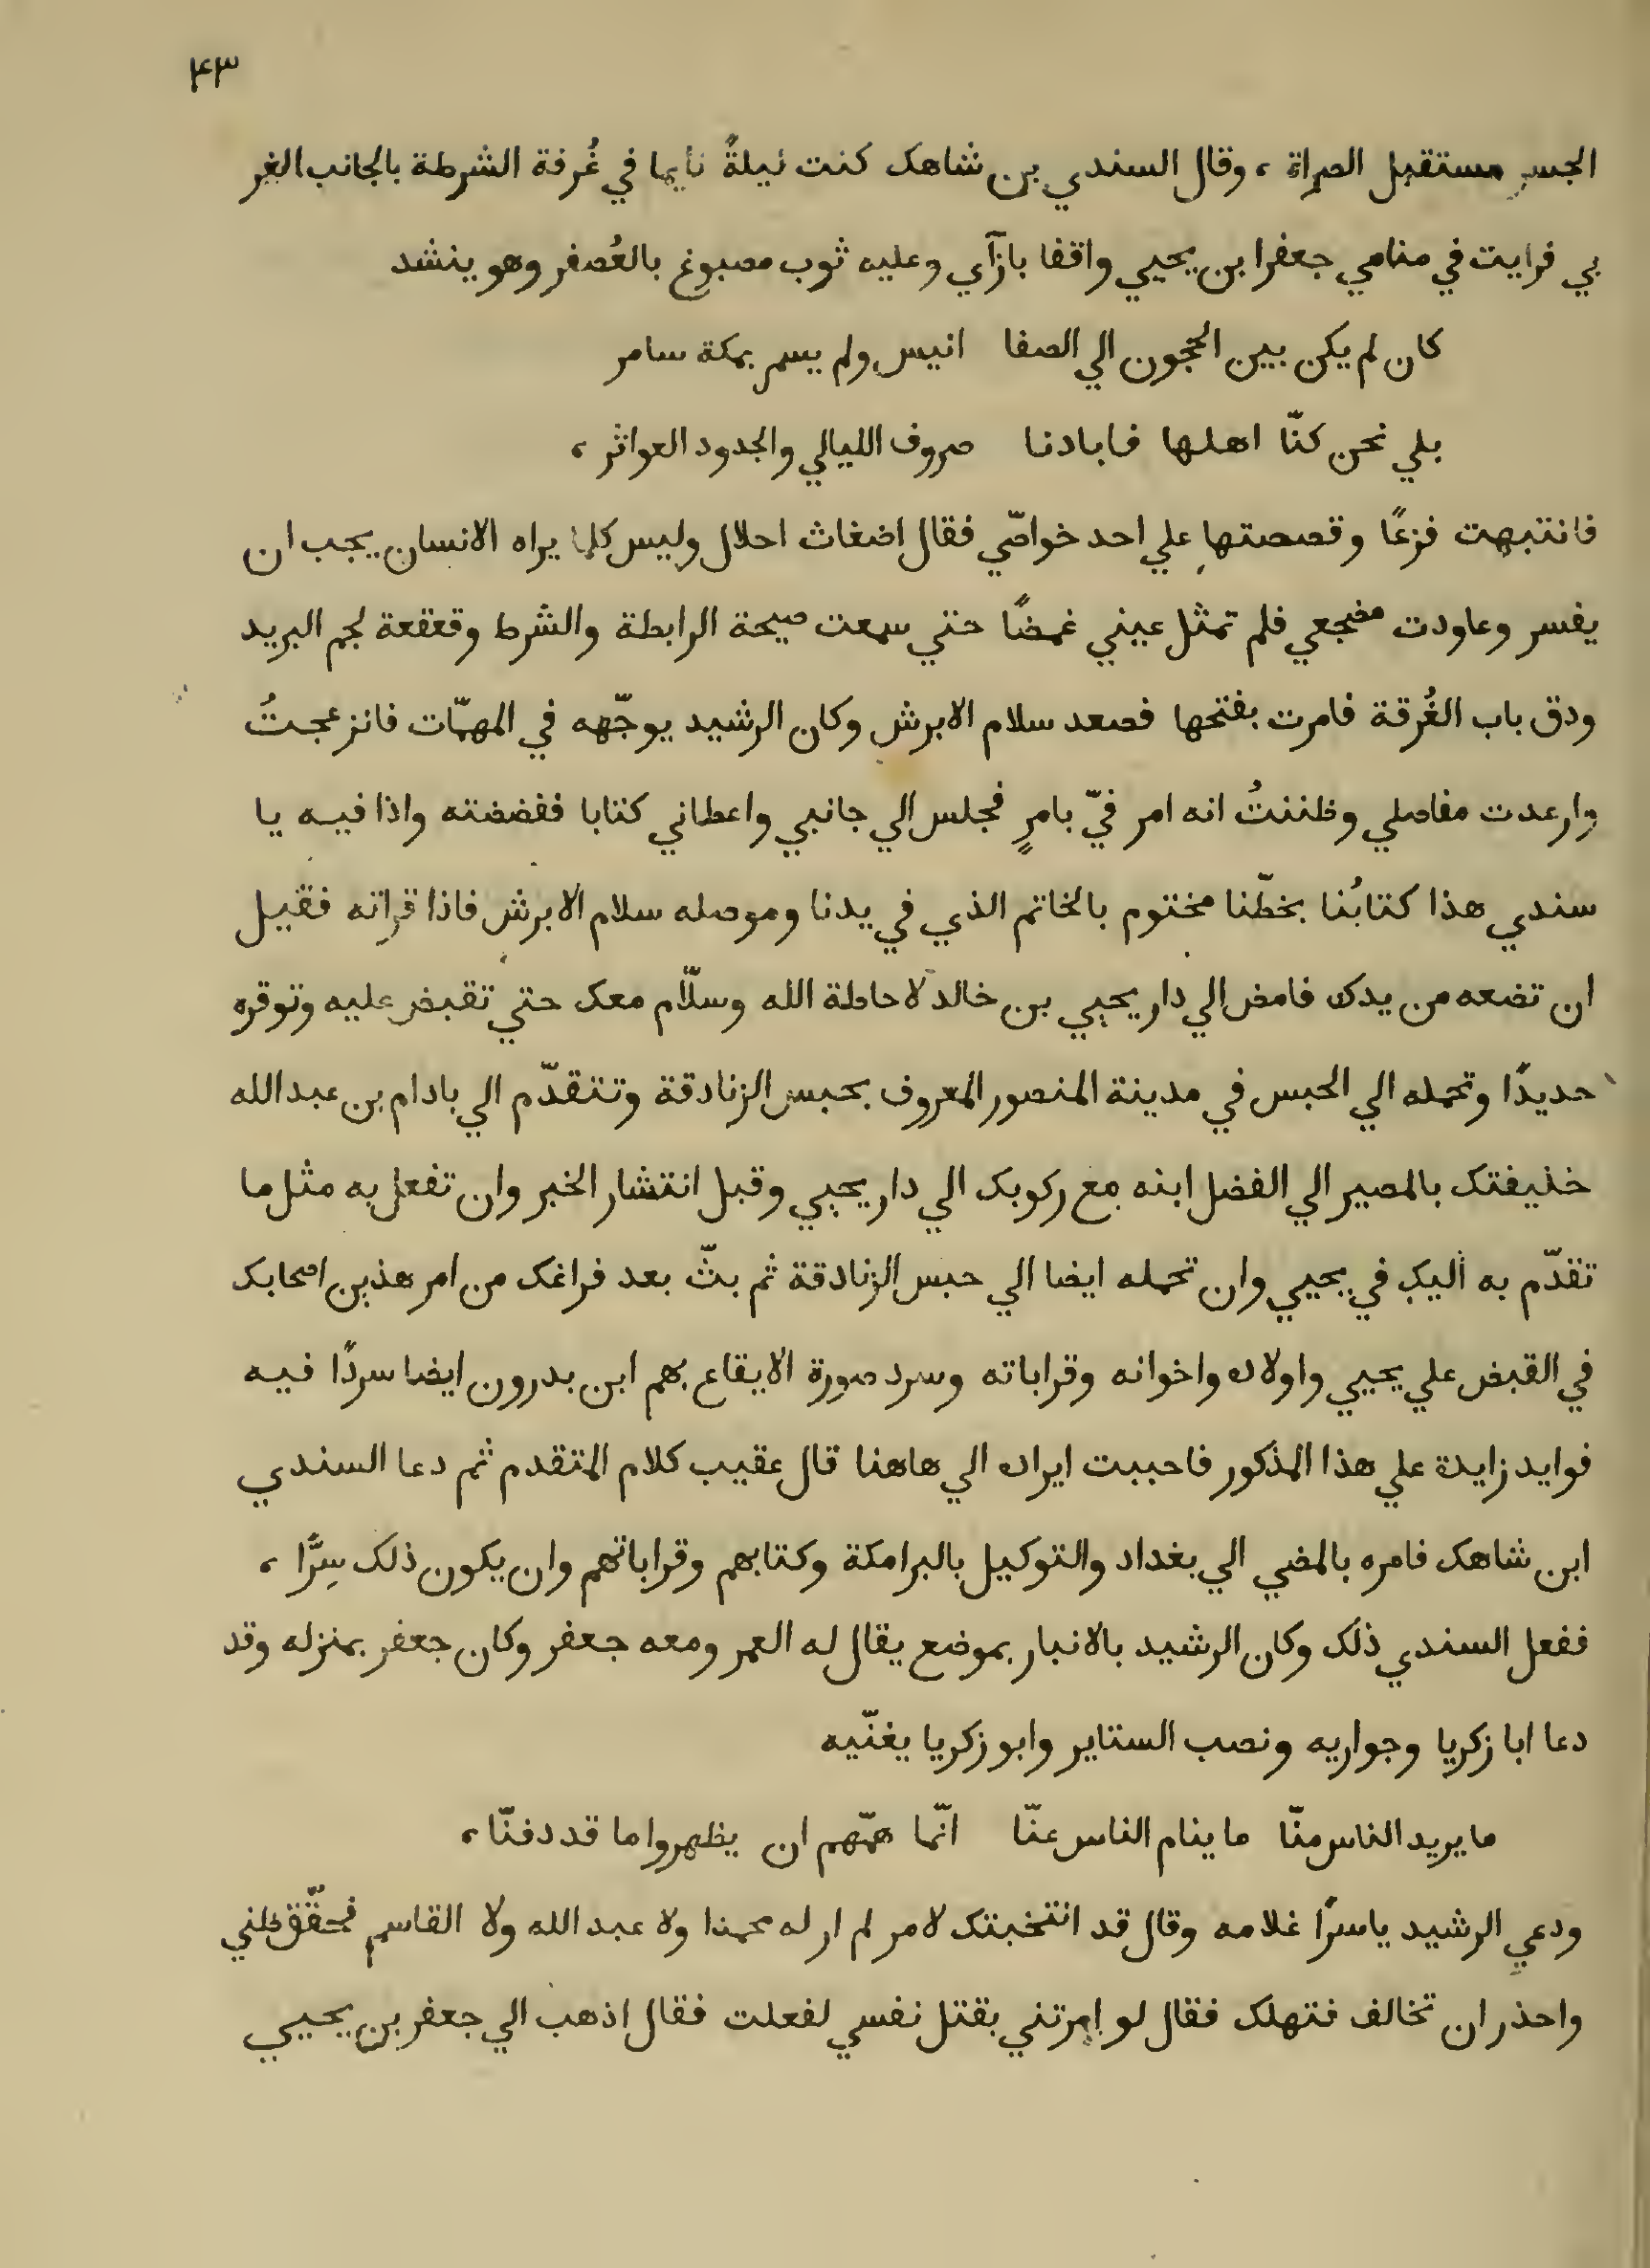 ۴۳
الجسر مستقبل الصراة ، وقال السندي بن شاهك كنت ليلةً نايما في غُرفة الشرطة بالجانب الغر
بي فرايت في منامي جعفرا بن يحيي واقفا بازآي وعليه ثوب مصبوغ بالعُصفر وهو ينشد
كان لم يكن بين الحجون الي الصفا انيس ولم يسمر بمكة سامر
بلي نحن كنّا اهلها فابادنا صروف الليالي والجدود العواثر ،
فانتبهت فزعًا وقصصتها علي احد خواصّي فقال اضغاث احلال وليس كلما يراه الانسان يجب ان
يفسر وعاودت مضجعي فلم تمثل عيني غمضًا حتي سمعت صيحة الرابطة والشرط وقعقعة لجم البريد
ودق باب الغُرقة فامرت بفتحها فصعد سلام الابرش وكان الرشيد يوجّهه في المهمّات فانزعجتُ
وارعدت مفاصلي وظننتُ انه امر فيّ بامرٍ فجلس الي جانبي واعطاني كتابا ففضضته واذا فيه يا
سندي هذا كتابُنا بخطّنا مختوم بالخاتم الذي في يدنا وموصله سلام الابرش فاذا قراته فقبل
ان تضعه من يدك فامض الي دار يحيي بن خالد لا حاطة الله وسلّام معك حتي تقبض عليه وتوقره
حديدًا وتحمله الي الحبس في مدينة المنصور المعروف بحبس الزنادقة وتتقدّم الي بادام بن عبد الله
خليفتك بالمصير الي الفضل ابنه مع ركوبك الي دار يحيي وقبل انتشار الخبر وان تفعل به مثل ما
تقدّم به اليك في يحيي وان تحمله ايضا الي حبس الزنادقة ثم بثّ بعد فراغك من امر هذين اصحابك
في القبض علي يحيي واولاده واخوانه وقراباته وسرد صورة الايقاع بهم ابن بدرون ايضا سردًا فيه
فوايد زايدة علي هذا المذكور فاحببت ايراده الي هاهنا قال عقيب كلام المتقدم ثم دعا السندي
ابن شاهك فامره بالمضي الي بغداد والتوكيل بالبرامكة وكتابهم وقراباتهم وان يكون ذلك سِرًّا ،
ففعل السندي ذلك وكان الرشيد بالانبار بموضع يقال له العمر ومعه جعفر وكان جعفر بمنزله وقد
دعا ابا زكريا وجواريه ونصب الستاير وابو زكريا يغنّيه
ما يريد الناس منّا ما ينام الناس عنّا انّما همّهم ان يظهروا ما قد دفنّا ،
ودعي الرشيد ياسرًا غلامه وقال قد انتخبتك لامر لم ار له محمدا ولا عبد الله ولا القاسم فحقّق ظني
واحذر ان تخالف فتهلك فقال لو امرتني بقتل نفسي لفعلت فقال اذهب الي جعفر بن يحيي